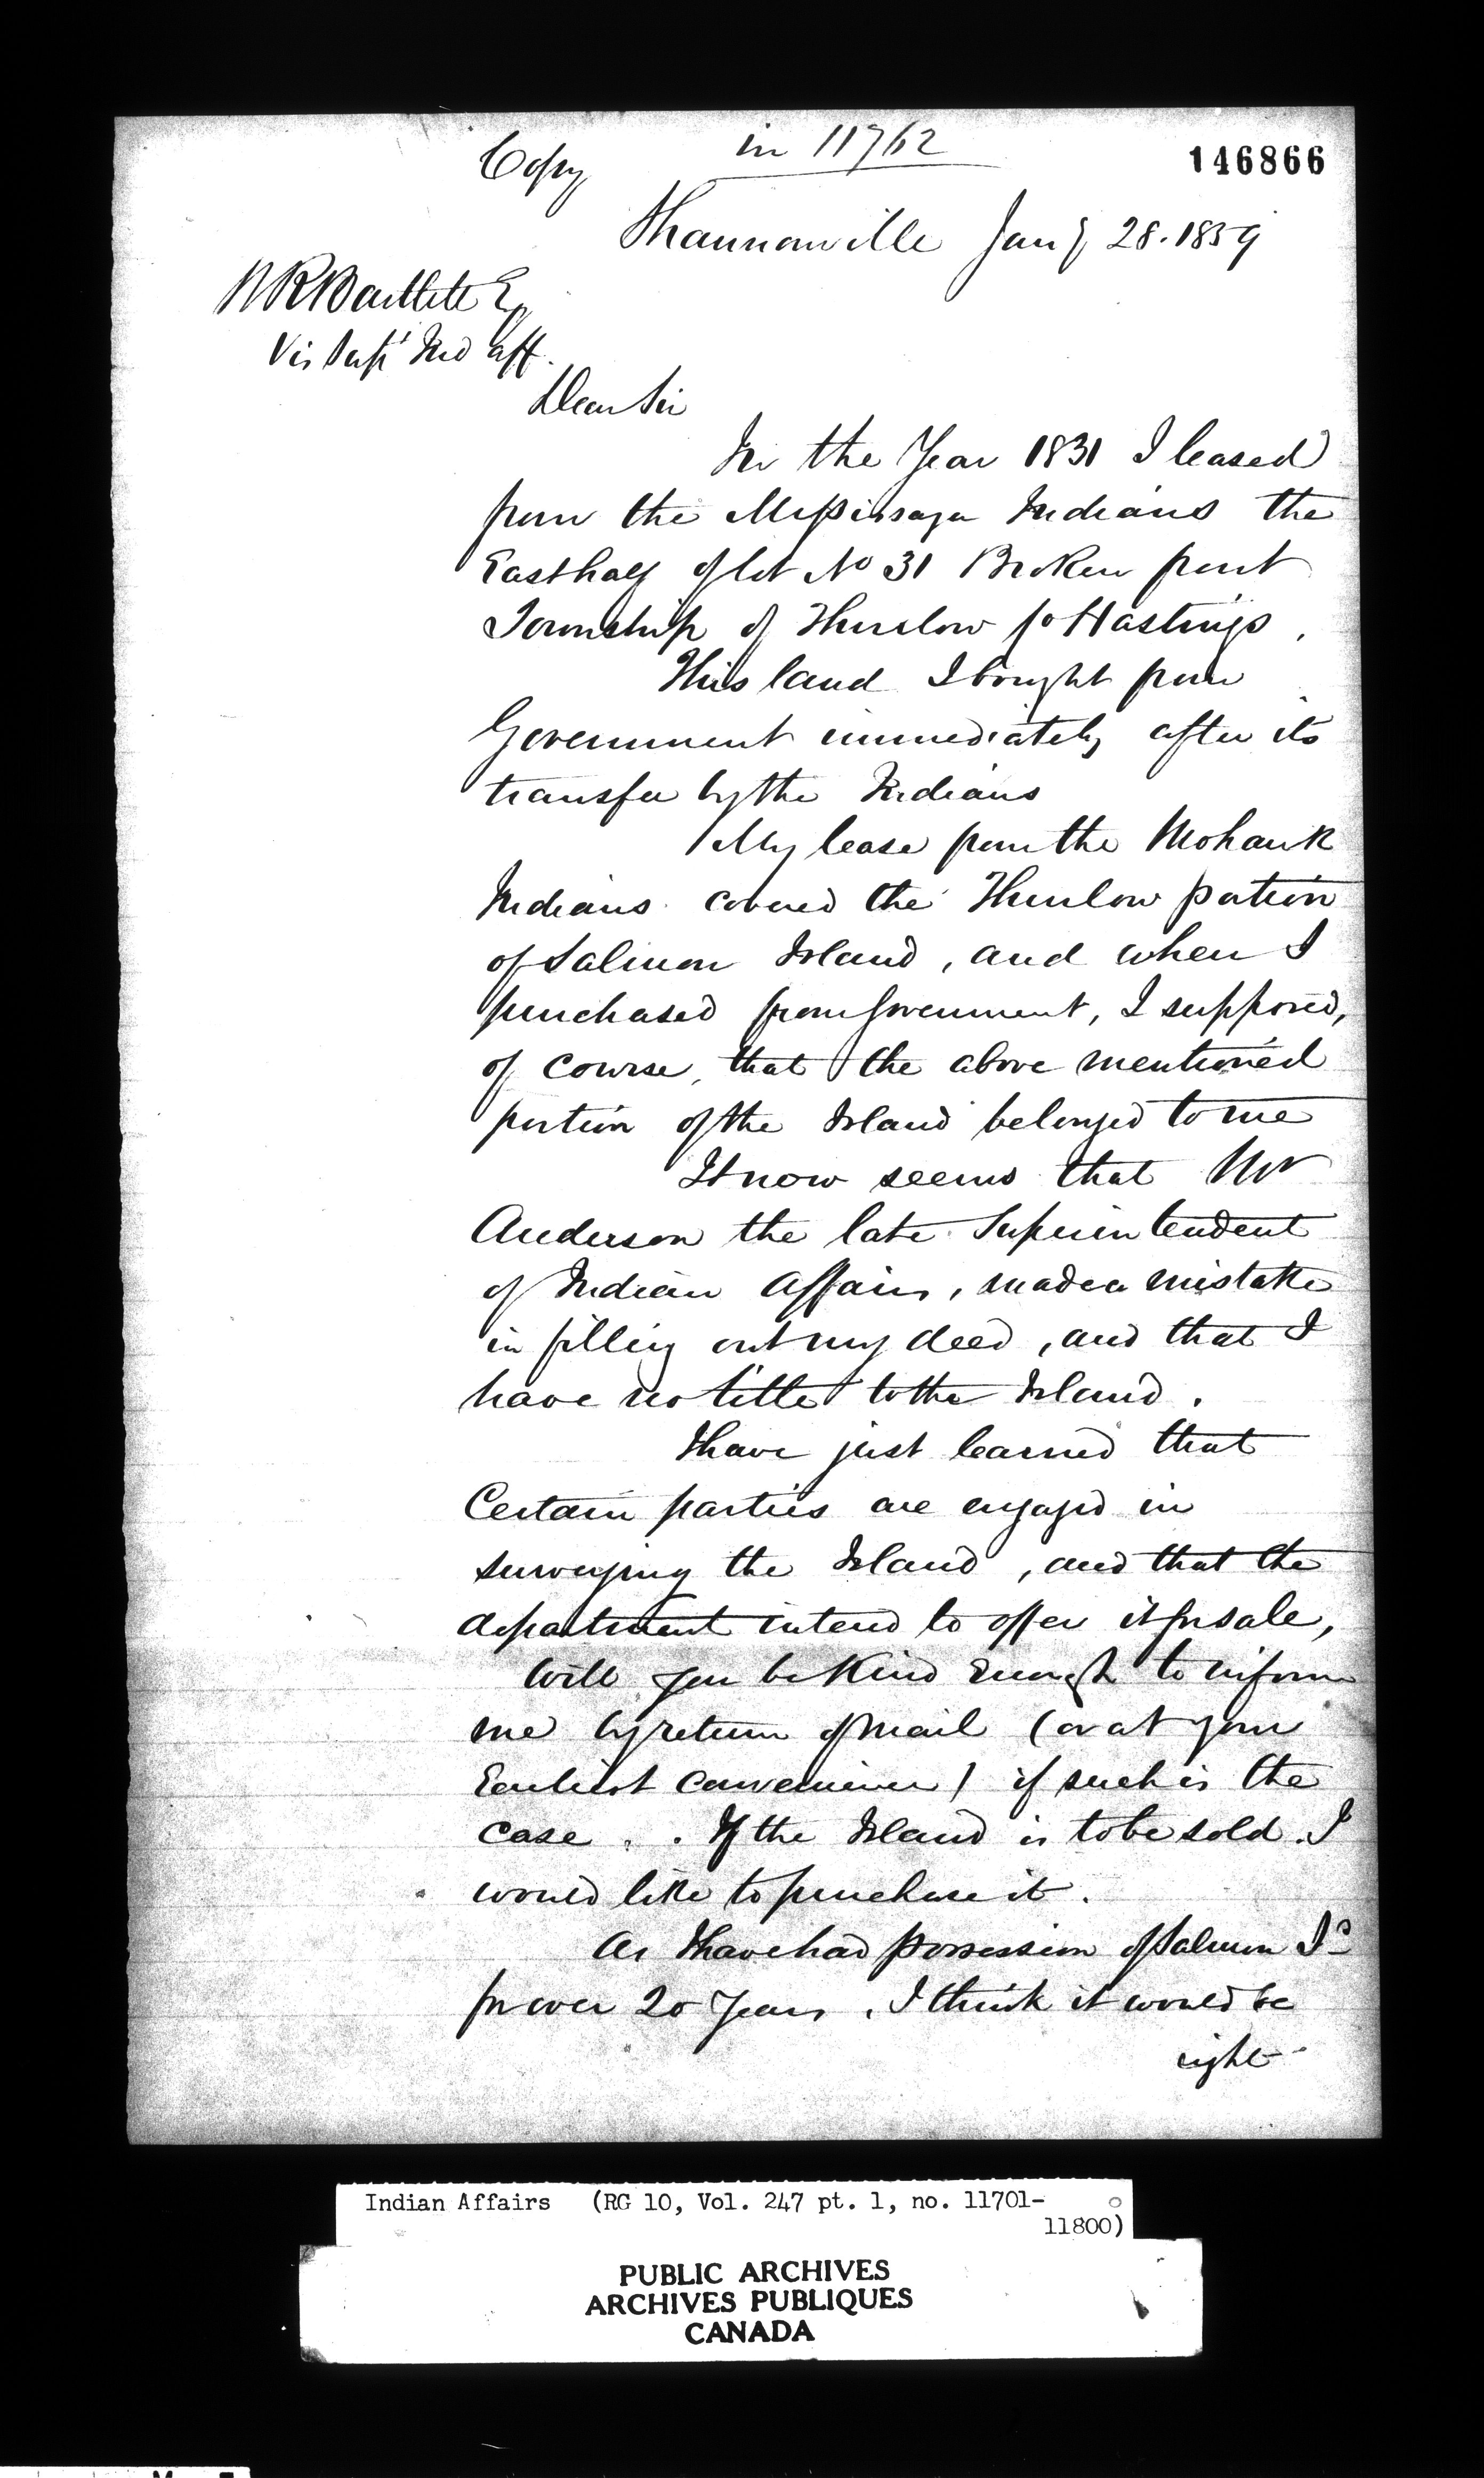 Copy
in 11762
146866
Shannonville Jany 28. 1859
W R Bartlett Esq
Vis Supt Ind Aff.
Dear Sir
In the Year 1831 I leased
from the Missisaga Indians the
East half of lot No 31 Broken front
Township of Thurlow Co Hastings.
This land I bought from
Government immediately after its
transfer by the Indians
My lease from the Mohawk
Indians covered the Thurlow portion
of Salmon Island, and when I
purchased from Government, I supposed,
of course, that the above mentioned
portion of the Island belonged to me
It now seems that Mr
Anderson the late Superintendent
of Indian Affairs, made a mistake
in filling out my deed, and that I
have no title to the Island.
I have just learned that
Certain parties are engaged in
surveying the Island, and that the
department intend to offer it for sale,
Will you be Kind Enough to inform
me by return of mail (or at your
Earliest convenience) if such is the
case.. If the Island is to be sold. I
would like to purchase it.
As I have had possession of Salmon Id
for over 20 Years, I think it would be
right
Indian Affairs (RG 10, Vol. 247 pt. 1, no. 11701-
11800)
PUBLIC ARCHIVES
ARCHIVES PUBLIQUES
CANADA